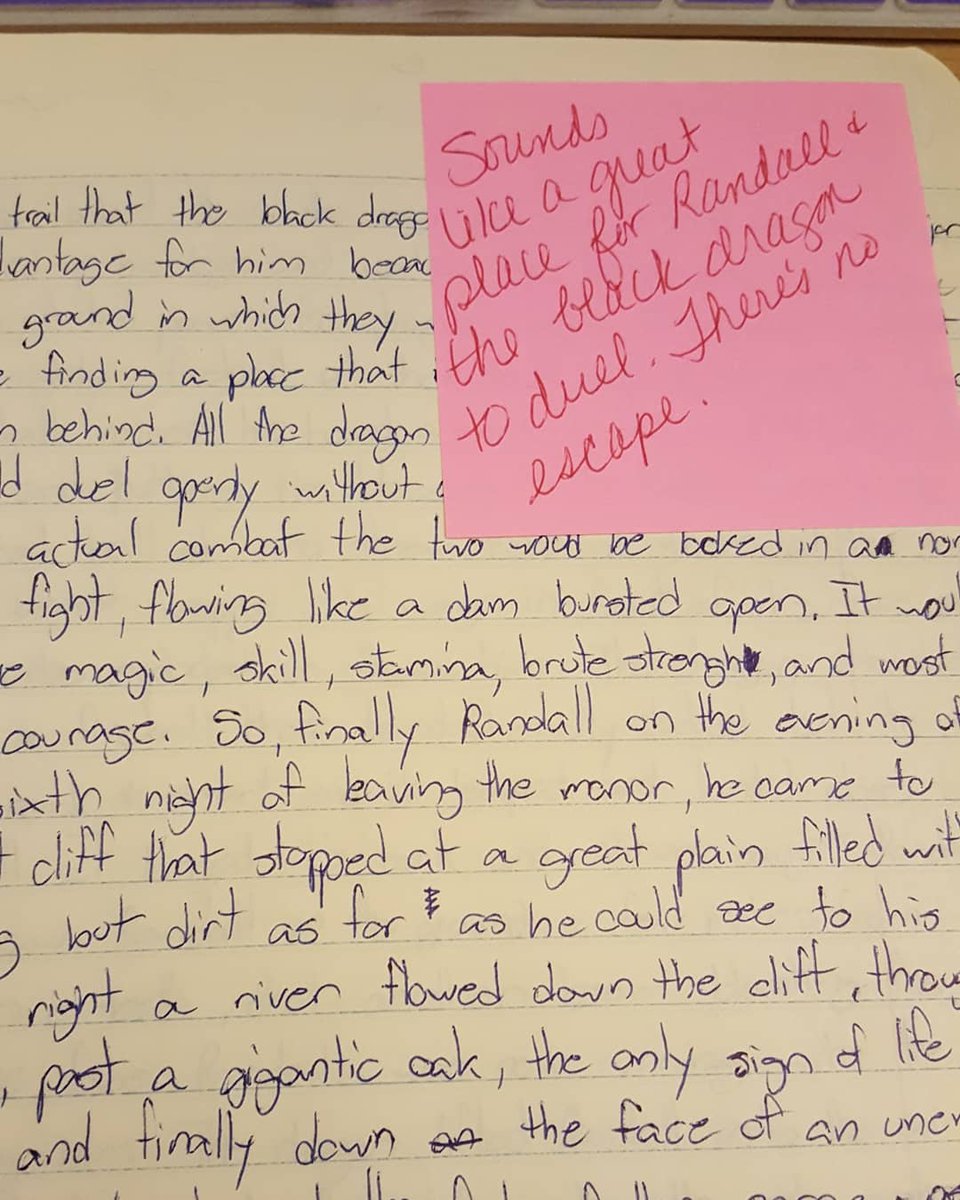 Sounds
like a great
place for Randall &
the black dragon
to duel. There's no
escape.
trail that the black drago
vantage for him becau
ground in which they w
finding a place that
behind. All the dragon
duel openly without
actual combat the two woud be locked in a nor
fight, flowing like a dam bursted open. It woul
magic, skill, stamina, brute strength, and most
courage. So, finally Randall on the evening of
ixth night of leaving the manor, he came to
cliff that stopped at a great plain filled wit
but dirt as far as he could see to his
right a river flowed down the cliff, throug
, past a gigantic oak, the only sign of life
and finally down the face of an unen